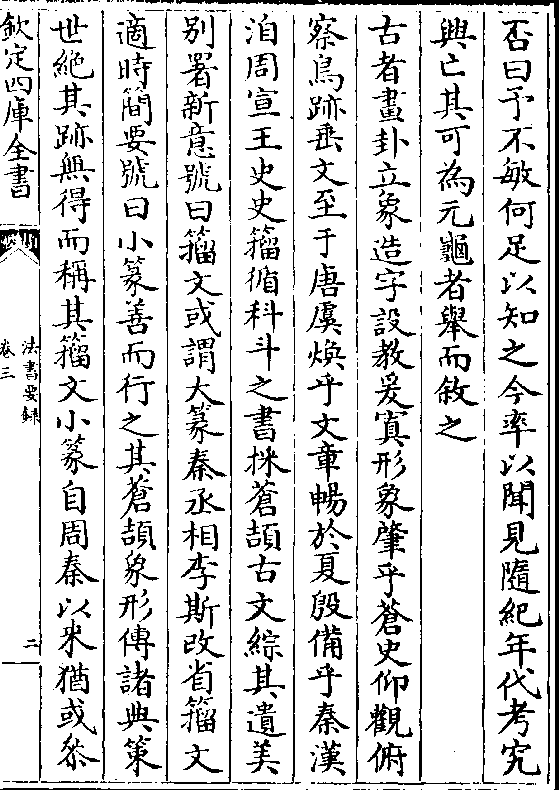 否曰予不敏何足以知之今率以聞見隨紀年代考究
興亡其可為元龜者舉而叙之
古者畫卦立象造字設教爰寘形象肇乎蒼史仰觀俯
察鳥跡垂文至于唐虞煥乎文章暢於夏殷備乎秦漢
洎周宣王史史籀循科斗之書採蒼頡古文綜其遺美
別署新意號曰籀文或謂大篆秦丞相李斯改省籀文
適時簡要號曰小篆善而行之其蒼頡象形傳諸典策
世絕其跡無得而稱其籀文小篆自周秦以來猶或叅
欽定四庫全書
法書要録
卷三
二